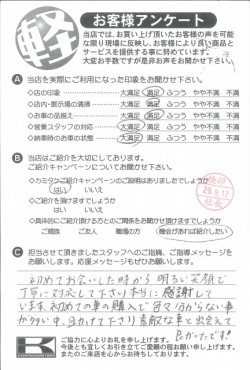 軽
お客様アンケート
当店では、お買い上げ頂いたお客様の声を可能
な限り現場に反映し、お客様により良い商品と
サービスを提供する事に努めています。
大変お手数ですが是非お声をお聞かせ下さい。
A 当店を実際にご利用になった印象をお聞かせ下さい。
◇店の印象 大満足 満足 ふつう やや不満 不満
◇店内・展示場の清掃 大満足 満足 ふつう やや不満 不満
◇お車の品揃え 大満足 満足 ふつう やや不満 不満
◇営業スタッフの対応 大満足 満足 ふつう やや不満 不満
◇納車時のお車の状態 大満足 満足 ふつう やや不満 不満
B 当店はご紹介を大切にしております。
ご紹介キャンペーンについてお聞かせ下さい。
◇カミタケご紹介キャンペーンのご説明はありましたでしょうか
はい いいえ
◇ご紹介を頂けますでしょうか
はい いいえ
◇具体的にご紹介頂ける方とのご関係をお聞かせ頂けますでしょうか
ご親族 ご友人 職場の方 機会があれば紹介したい
社長
C 担当させて頂きましたスタッフへのご指摘、ご指導メッセージを
お願いします。応援メッセージもぜひお願いします。
初めてお会いした時から 明るい笑顔で
丁寧に対応して下さり本当に感謝して
います。初めての車の購入で何もわからない事
が多い中、助けて下さり素敵な車と出会えて
良かったです!
K
ご協力に心よりお礼を申し上げます。
今後とも宜しくお引き立てご愛顧の程お願い申し上げます。
またのご来店を心からお待ちしております。